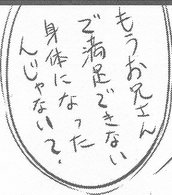 もうお兄さん
で満足できない
身体になった
んじゃないて?